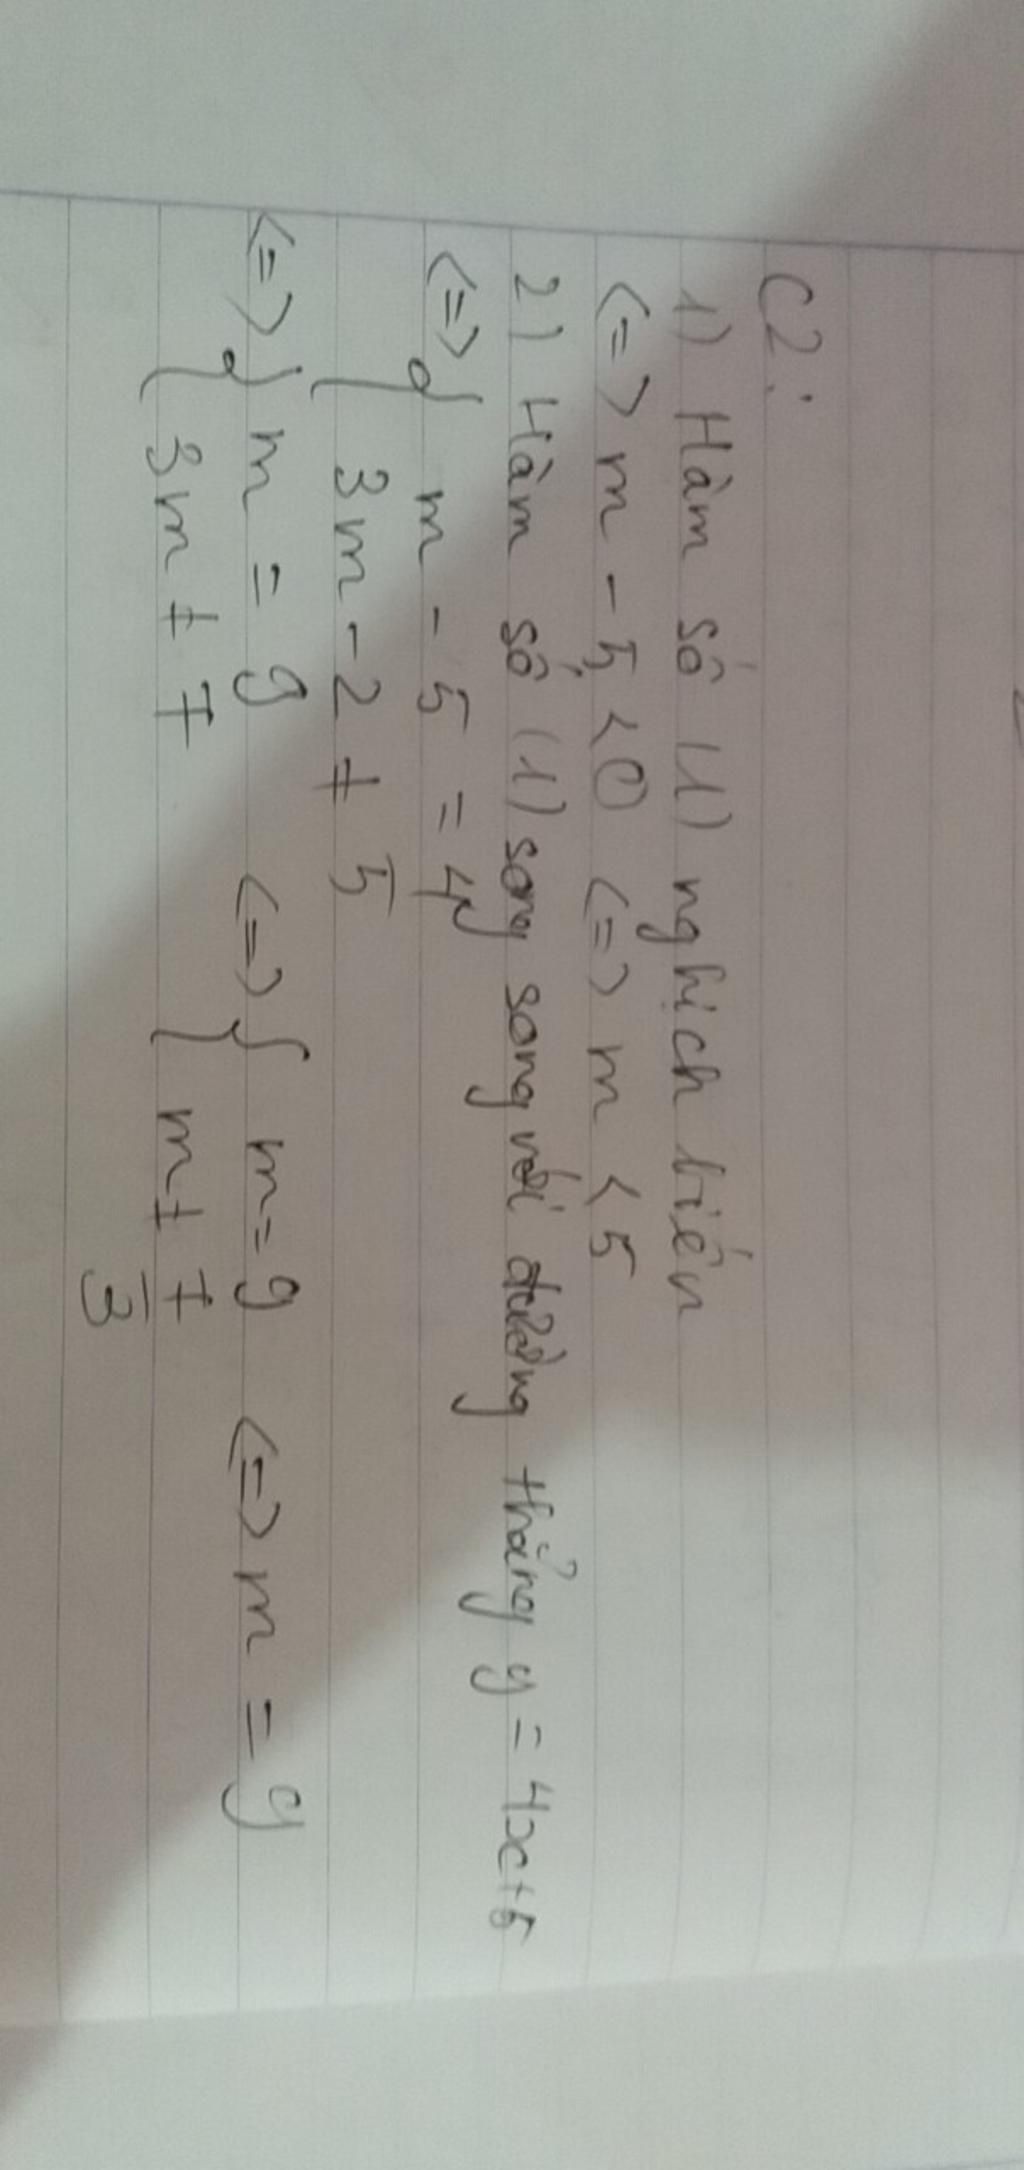 C2:
1) Hàm số (1) nghịch biến
<=> m - 5 < 0 <=> m < 5
2) Hàm số (1) song song với đường thẳng y = 4x+5
<=> { m - 5 = 4
3m - 2 ≠ 5
<=> { m = 9 <=> { m = 9 <=> m = 9
3m ≠ 7 m ≠ 7/3